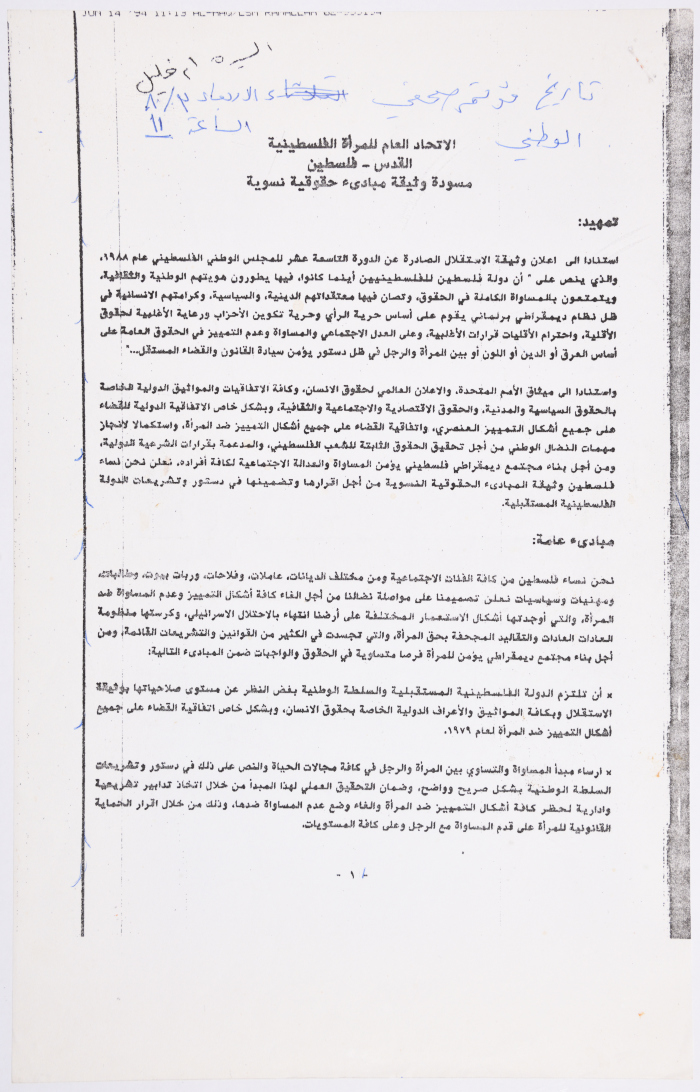 JUN 14 '94 11:13 AL-MAJLESM RAMALLAH 02-
السيدة ام خليل
تاريخ مؤتمر صحفي الثلاثاء الاربعاء ٨/٣
الوطني الساعة 11
الاتحاد العام للمرأة الفلسطينية
القدس - فلسطين
مسودة وثيقة مبادىء حقوقية نسوية
تمهيد:
استنادا الى اعلان وثيقة الاستقلال الصادرة عن الدورة التاسعة عشر للمجلس الوطني الفلسطيني عام ١٩٨٨،
والذي ينص على " أن دولة فلسطين للفلسطينيين أينما كانوا، فيها يطورون هويتهم الوطنية والثقافية،
ويتمتعون بالمساواة الكاملة في الحقوق، وتصان فيها معتقداتهم الدينية، والسياسية، وكرامتهم الانسانية في
ظل نظام ديمقراطي برلماني يقوم على أساس حرية الرأي وحرية تكوين الأحزاب ورعاية الأغلبية لحقوق
الأقلية، واحترام الأقليات قرارات الأغلبية، وعلى العدل الاجتماعي والمساواة وعدم التمييز في الحقوق العامة على
أساس العرق أو الدين أو اللون أو بين المرأة والرجل في ظل دستور يؤمن سيادة القانون والقضاء المستقل..."
واستنادا الى ميثاق الأمم المتحدة، والاعلان العالمي لحقوق الانسان، وكافة الاتفاقيات والمواثيق الدولية الخاصة
بالحقوق السياسية والمدنية، والحقوق الاقتصادية والاجتماعية والثقافية، وبشكل خاص الاتفاقية الدولية للقضاء
على جميع أشكال التمييز العنصري، واتفاقية القضاء على جميع أشكال التمييز ضد المرأة، واستكمالا لانجاز
مهمات النضال الوطني من أجل تحقيق الحقوق الثابتة للشعب الفلسطيني، والمدعمة بقرارات الشرعية الدولية،
ومن أجل بناء مجتمع ديمقراطي فلسطيني يؤمن المساواة والعدالة الاجتماعية لكافة أفراده، نعلن نحن نساء
فلسطين وثيقة المبادىء الحقوقية النسوية من أجل اقرارها وتضمينها في دستور وتشريعات الدولة
الفلسطينية المستقبلية.
مبادىء عامة:
نحن نساء فلسطين من كافة الفئات الاجتماعية ومن مختلف الديانات، عاملات، وفلاحات، وربات بيوت، وطالبات،
ومهنيات وسياسيات نعلن تصميمنا على مواصلة نضالنا من أجل الغاء كافة أشكال التمييز وعدم المساواة ضد
المرأة، والتي أوجدتها أشكال الاستعمار المختلفة على أرضنا انتهاء بالاحتلال الاسرائيلي، وكرستها منظومة
العادات العادات والتقاليد المجحفة بحق المرأة، والتي تجسدت في الكثير من القوانين والتشريعات القائمة، ومن
أجل بناء مجتمع ديمقراطي يؤمن للمرأة فرصا متساوية في الحقوق والواجبات ضمن المبادىء التالية:
× أن تلتزم الدولة الفلسطينية المستقبلية والسلطة الوطنية بغض النظر عن مستوى صلاحياتها بوثيقة
الاستقلال وبكافة المواثيق والأعراف الدولية الخاصة بحقوق الانسان، وبشكل خاص اتفاقية القضاء على جميع
أشكال التمييز ضد المرأة لعام ١٩٧٩.
× ارساء مبدأ المساواة والتساوي بين المرأة والرجل في كافة مجالات الحياة والنص على ذلك في دستور وتشريعات
السلطة الوطنية بشكل صريح وواضح، وضمان التحقيق العملي لهذا المبدأ من خلال اتخاذ تدابير تشريعية
وادارية لحظر كافة أشكال التمييز ضد المرأة والغاء وضع عدم المساواة ضدها، وذلك من خلال اقرار الحماية
القانونية للمرأة على قدم المساواة مع الرجل وعلى كافة المستويات.
- ١ -